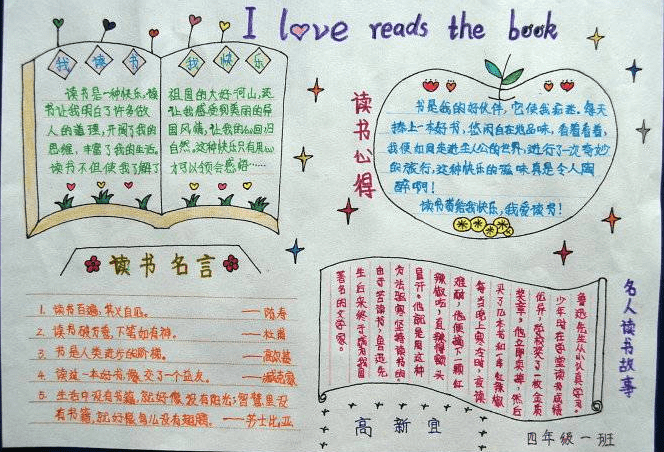 I love reads the book
我读书 我快乐
读书是一种快乐,读
书让我明白了许多做
人的道理,开阔了我的
思维,丰富了我的生活。
读书不但使我了解了
祖国的大好河山,还
让我感质到美丽的异
国风情,让我的心回归
自然,这种快乐只有用心
才可以领会感悟……
读书心得
书是我的好伙伴,它使我着迷。每天
捧上一本好书,悠闲自在地品味,看着看着,
我便如同走进主人公的世界,进行了一次奇妙
的旅行,这种快乐的滋味真是令人陶
醉啊!
读书带给我快乐,我爱读书!
读书名言
1. 读书百遍,其义自见。——陈寿
2. 读书破万卷,下笔如有神。——杜甫
3. 书是人类进步的阶梯。——高尔基
4. 读过一本好书,像交了一个益友。——臧克家
5. 生活中没有书籍,就好像没有阳光;智慧里没
有书籍,就好像鸟儿没有翅膀。——莎士比亚
名人读书故事
鲁迅先生从小认真学习。
少年时在学堂读书成绩
优异,学校奖了一枚金质
奖章,他立即卖掉,然后
买了几本书和一串红辣椒
每当晚上寒冷时,夜读
难耐,他便摘下一颗红
辣椒吃,直辣得额头
冒汗。他就是用这种
方法驱寒坚持读书的。
由于苦读书,鲁迅先
生后来终于成为我国
著名的文学家。
高新宜
四年级一班